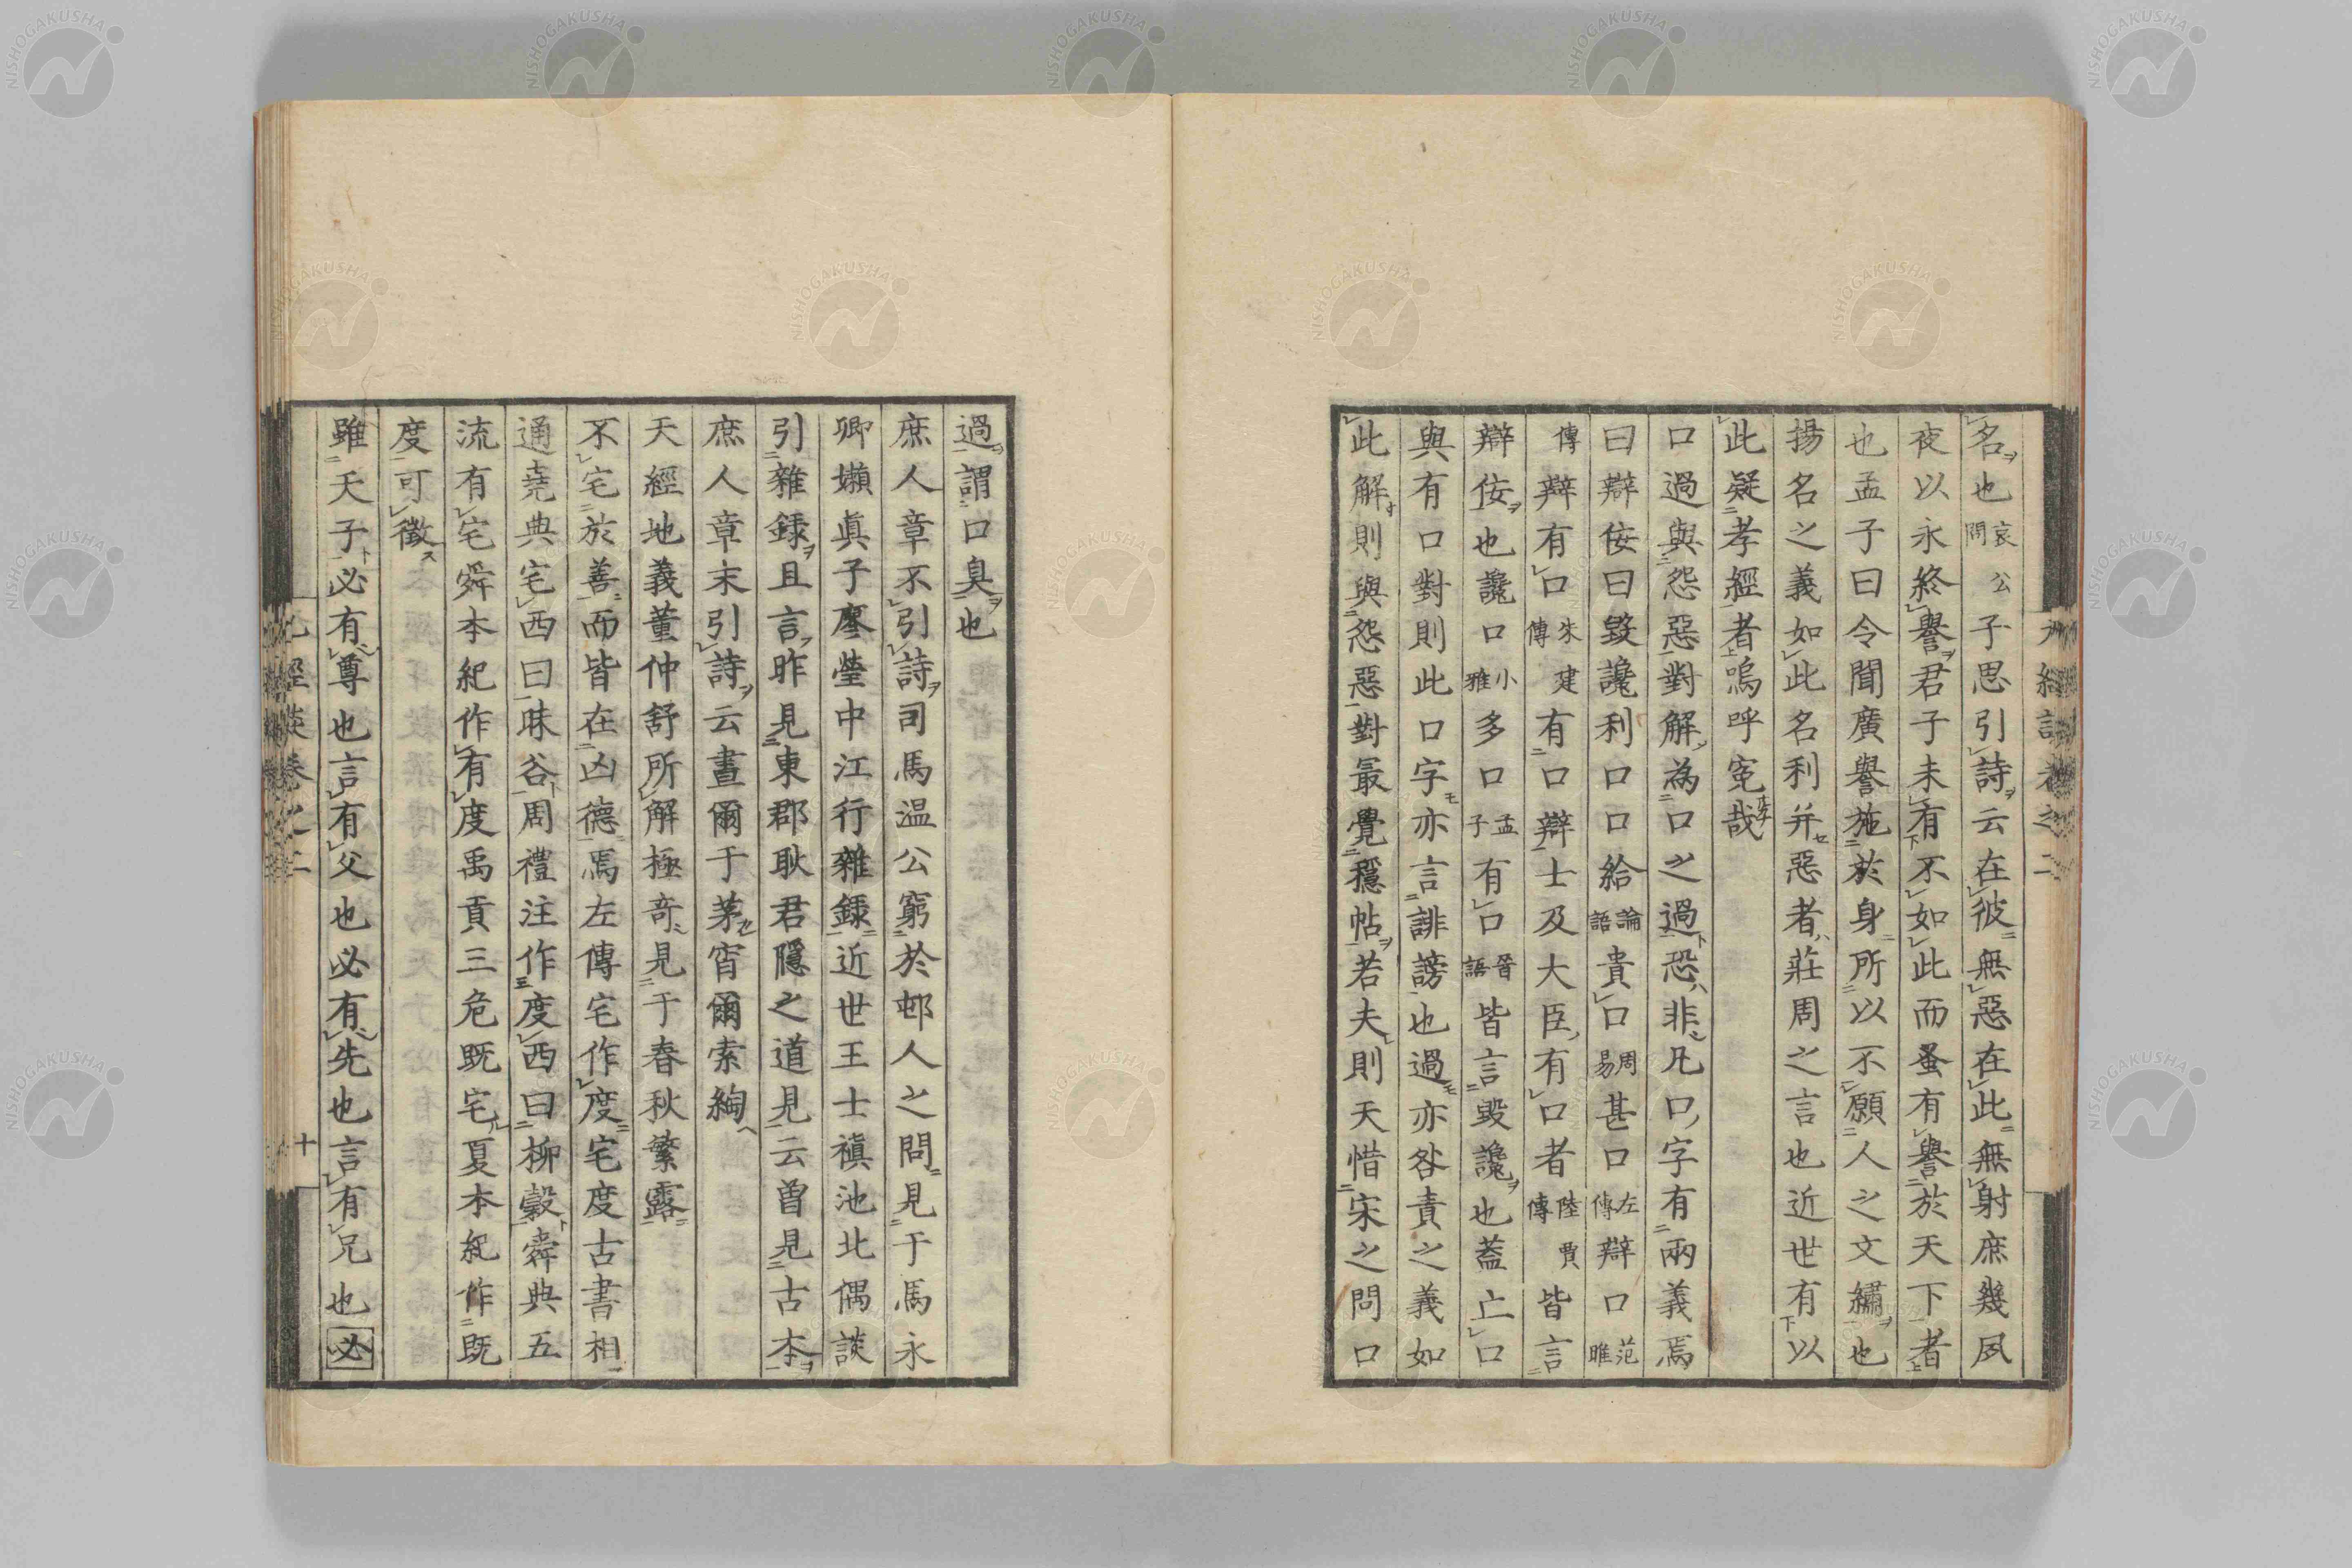 名也哀公問子思引詩云在彼無惡在此無射庶幾夙
夜以永終譽君子未有不如此而蚤有譽於天下者
也孟子曰令聞廣譽施於身所以不願人之文繡也
揚名之義如此名利并惡者莊周之言也近世有以
此疑孝經者嗚呼寃哉
口過與怨惡對解為口之過恐非凡口字有兩義焉
曰辯佞曰毀讒利口口給論語貴口周易甚口左傳辯口范雎
傳辯有口朱建傳有口辯士及大臣有口者陸賈傳皆言
辯佞也讒口小雅多口孟子有口晉語皆言毀讒也蓋亡口
與有口對則此口字亦言誹謗也過亦咎責之義如
此解則與怨惡對最覺穩帖若夫則天惜宋之問口
過謂口臭也
庶人章不引詩司馬温公窮於邨人之問見于馬永
卿嬾眞子廖瑩中江行雜録近世王士禛池北偶談
引雜録且言昨見東郡耿君隱之道見云曽見古本
庶人章末引詩云晝爾于茅宵爾索綯
天經地義董仲舒所解極竒見于春秋繁露
不宅於善而皆在凶德焉左傳宅作度宅度古書相
通堯典宅西曰昧谷周禮注作度西曰柳穀舜典五
流有宅舜本紀作有度禹貢三危既宅夏本紀作既
度可徵
雖天子必有尊也言有父也必有先也言有兄也必
九經談卷之二
十
NISHOGAKUSHA